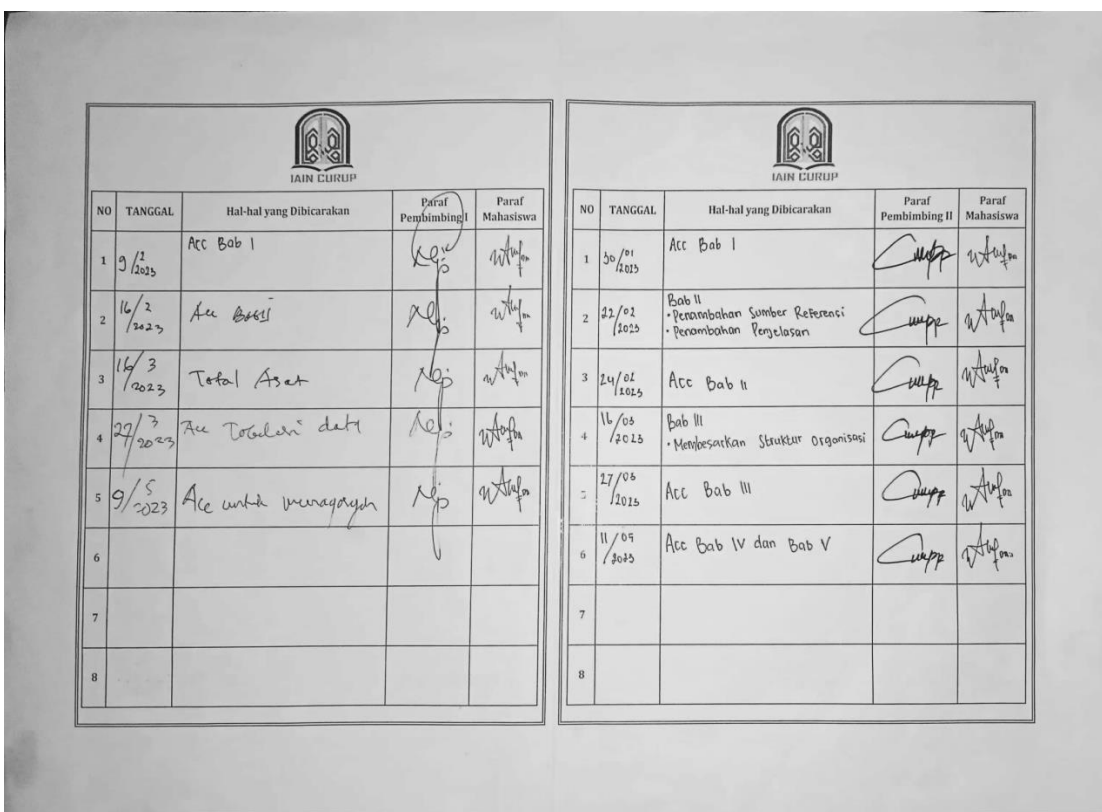 IAIN CURUP
NO TANGGAL Hal-hal yang Dibicarakan Paraf Pembimbing I Paraf Mahasiswa
1 9/2 2023 Acc Bab I
2 16/2 2023 Acc
3 16/3 2023 Total Aset
4 27/3 2023 Acc data
5 9/5 2023 Acc untuk
6
7
8
IAIN CURUP
NO TANGGAL Hal-hal yang Dibicarakan Paraf Pembimbing II Paraf Mahasiswa
1 30/01 2023 Acc Bab I
2 22/02 2023 Bab II
• Penambahan Sumber Referensi
• Penambahan Penjelasan
3 24/02 2023 Acc Bab II
4 16/03 2023 Bab III
• Membesarkan Struktur Organisasi
5 27/03 2023 Acc Bab III
6 11/05 2023 Acc Bab IV dan Bab V
7
8